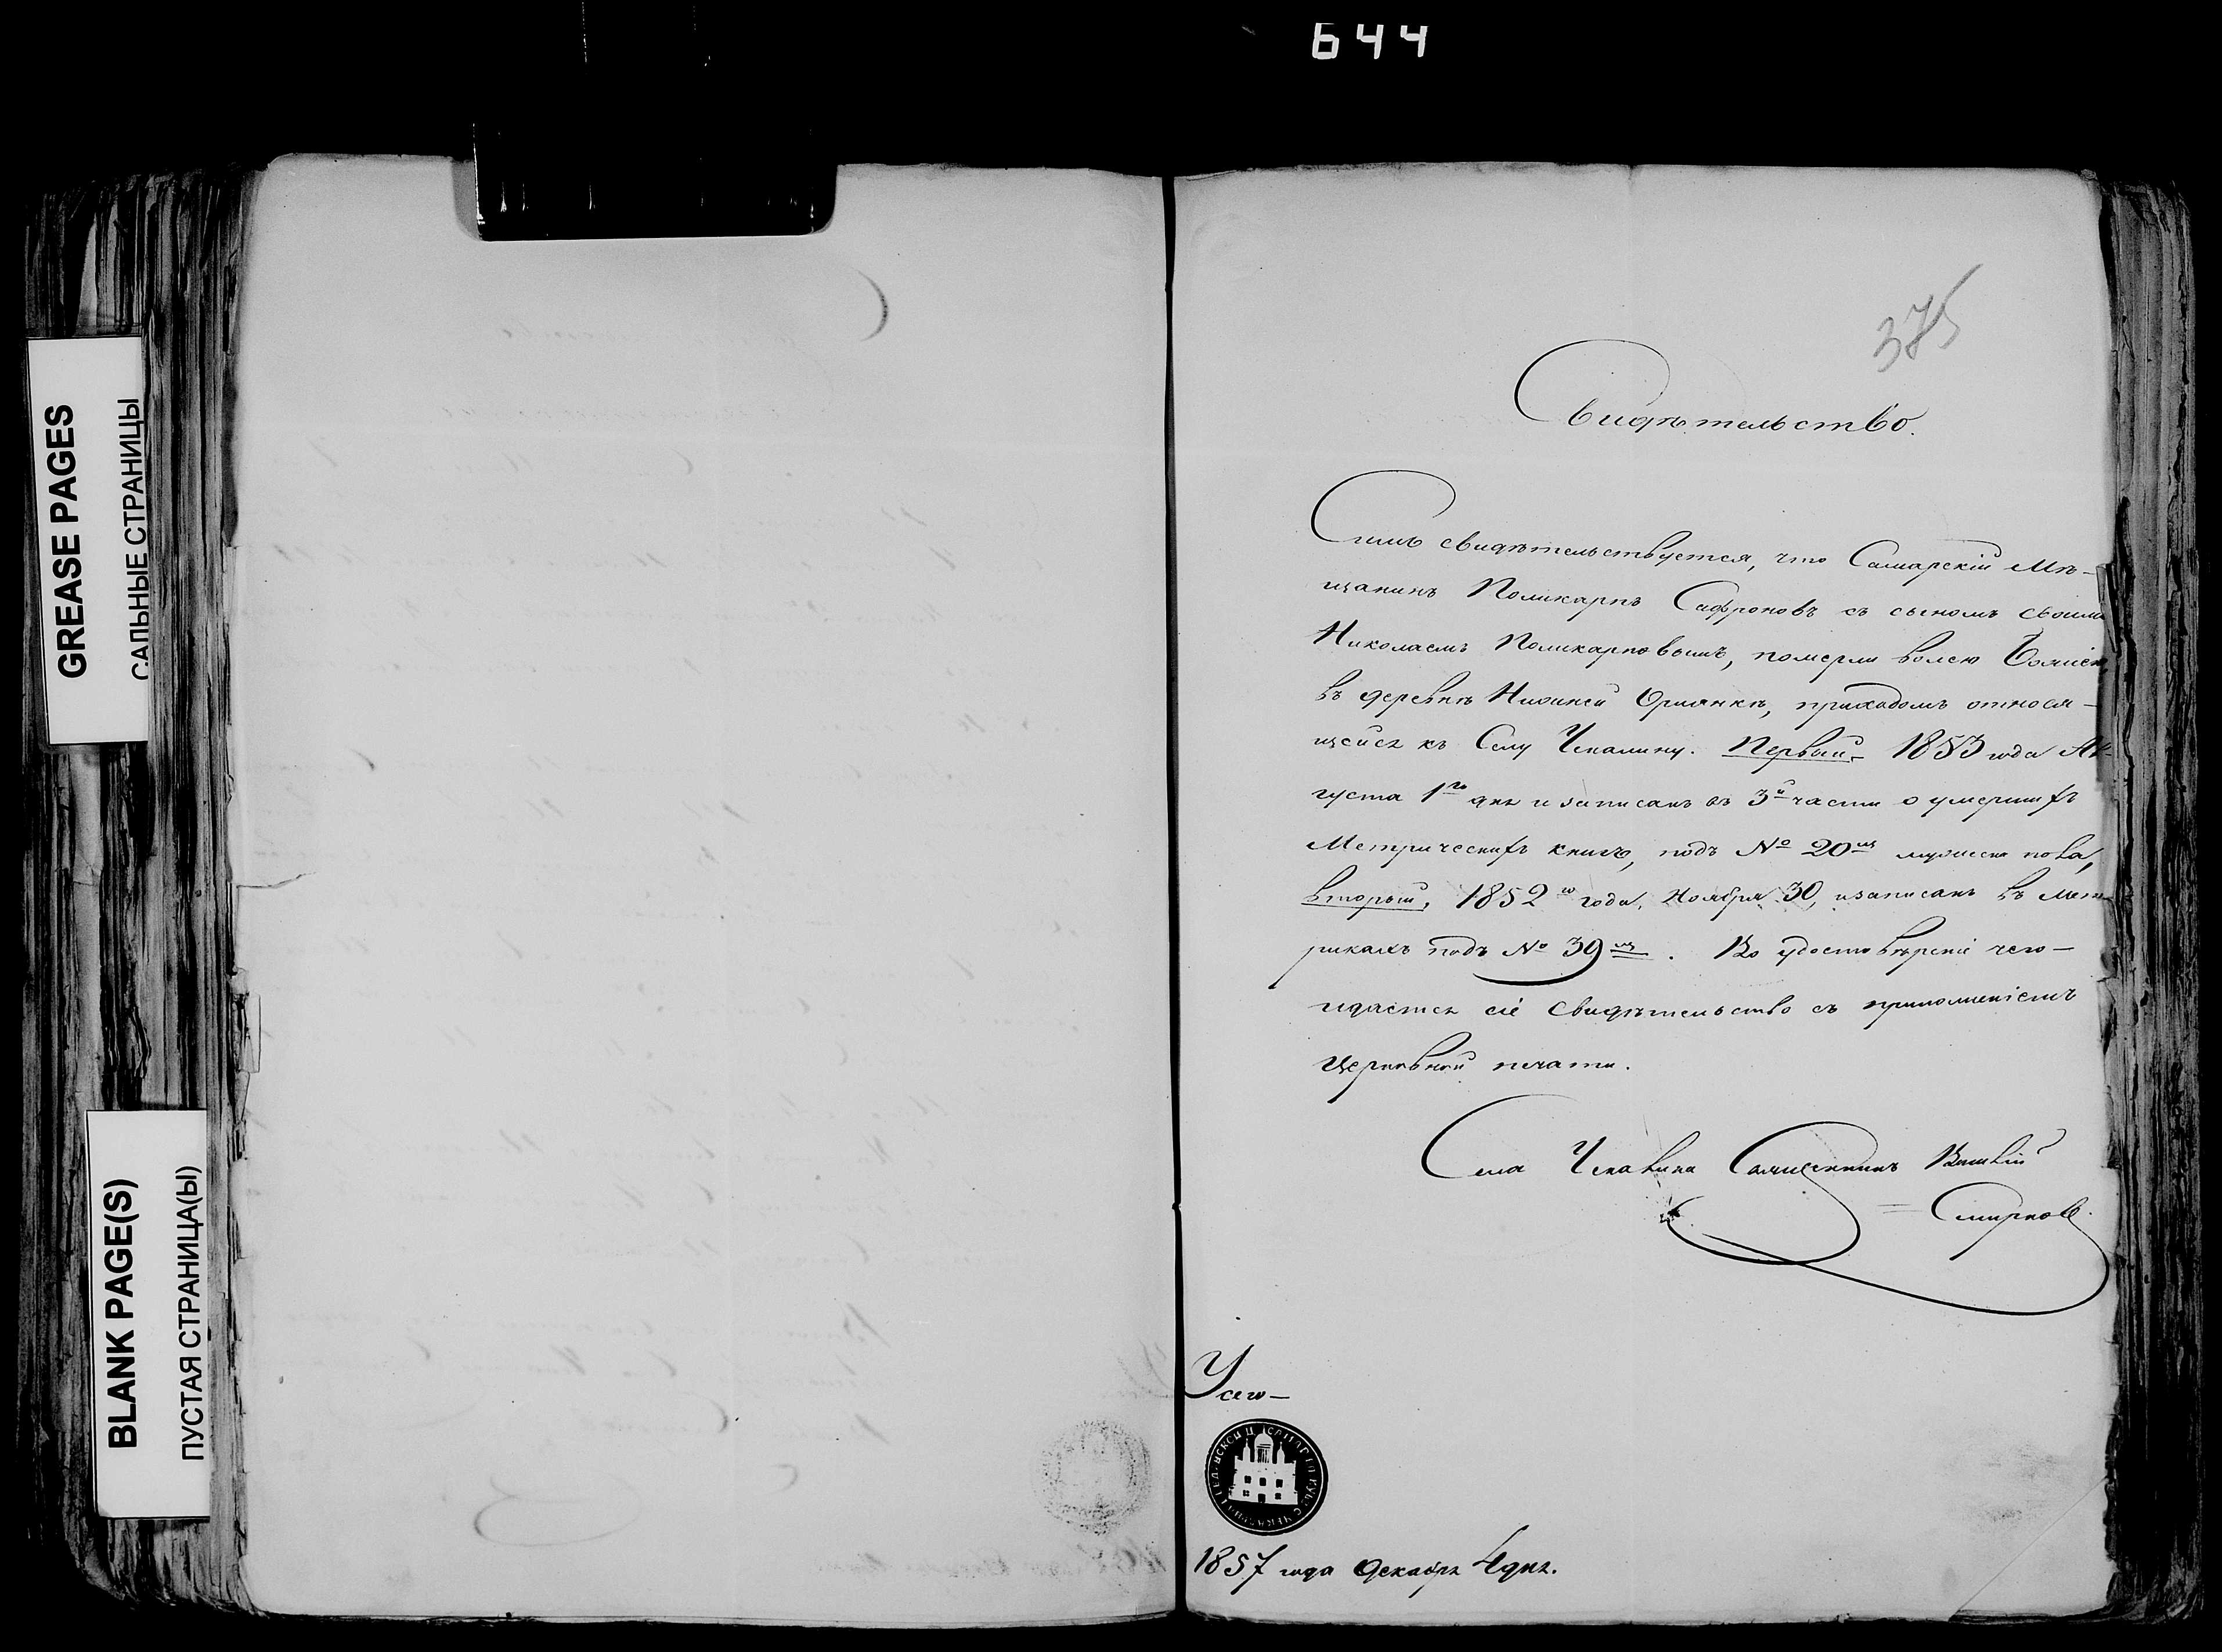 644
GREASE PAGES
САЛЬНЫЕ СТРАНИЦЫ
BLANK PAGE(S)
ПУСТАЯ СТРАНИЦА(Ы)
375
Свидѣтельство.
Симъ свидѣтельствуется, что Самарскій Мѣ-
щанинъ Поликарпъ Сафроновъ съ сыномъ своимъ
Николаемъ Поликарповымъ, померли волею Божіею,
въ деревнѣ Нижней Орлянкѣ, приходомъ относя-
щейся къ Селу Чекалину. Первый, 1853 года Ав-
густа 1го дня и записанъ въ 3й части о умершихъ
Метрическихъ книгъ, подъ № 20мъ мужеска пола,
второй, 1852го года, Ноября 30, и записанъ въ мет-
рикахъ подъ № 39мъ. Во удостовѣреніе чего—
и дается сіе свидѣтельство съ приложеніемъ
Церковной печати.
Села Чекалина Священникъ
Смирновъ.
У сего—
1857 года Декабря 4 дня.